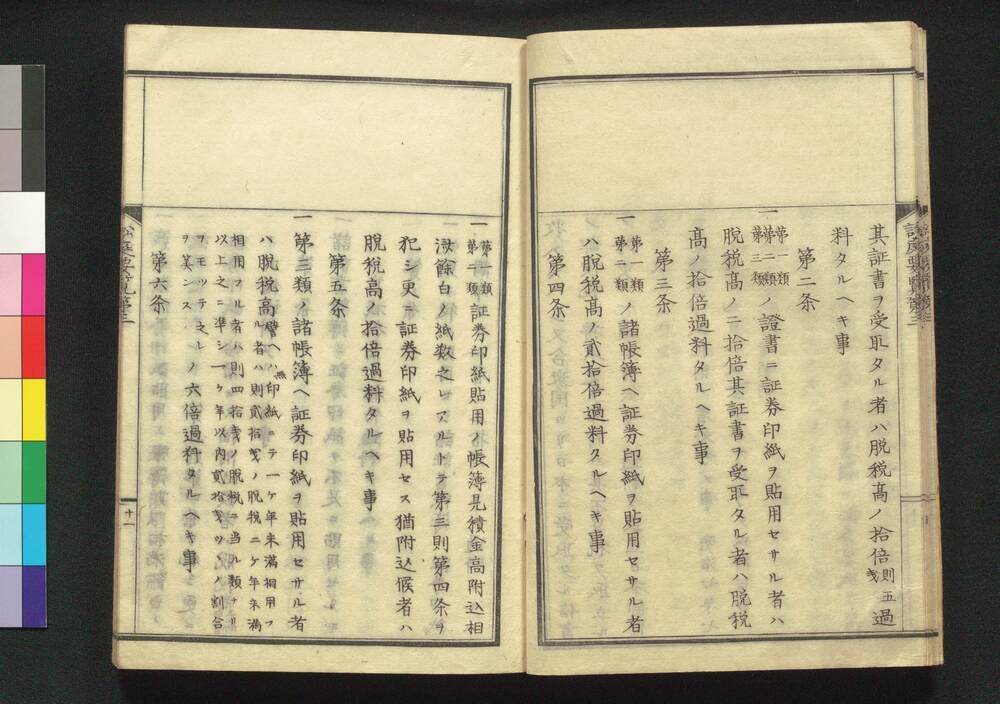 其証書ヲ受取タル者ハ脱税髙ノ拾倍則五戋過
料タルヘキ事
第二条
一第一類第二類第三類ノ證書ニ証券印紙ヲ貼用セサル者ハ
脱税髙ノ二拾倍其証書ヲ受取タル者ハ脱税
髙ノ拾倍過料タルヘキ事
第三条
一第一類第二類ノ諸帳簿ヘ証券印紙ヲ貼用セサル者
ハ脱税髙ノ貳拾倍過料タルヘキ事
第四条
一第一類第二類証券印紙貼用ノ帳簿見積金高附込相
済餘白ノ紙数之レアルトテ第三則第四条ヲ
犯シ更ニ証券印紙ヲ貼用セス猶附込候者ハ
脱税高ノ拾倍過料タルヘキ事
第五条
一第三類ノ諸帳簿ヘ証券印紙ヲ貼用セサル者
ハ脱税高譬ヘハ印紙無ニテ一ケ年未満相用フ
ル者ハ則貳拾戋ノ脱税二ケ年未満
相用フル者ハ則四拾戋ノ脱税ニ当ル類ナリ
以上之ニ準シ一ケ年以内貳拾戋ツヽノ割合
ヲモツテ之レ
ヲ算ンスノ六倍過料タルヘキ事
第六条
十一